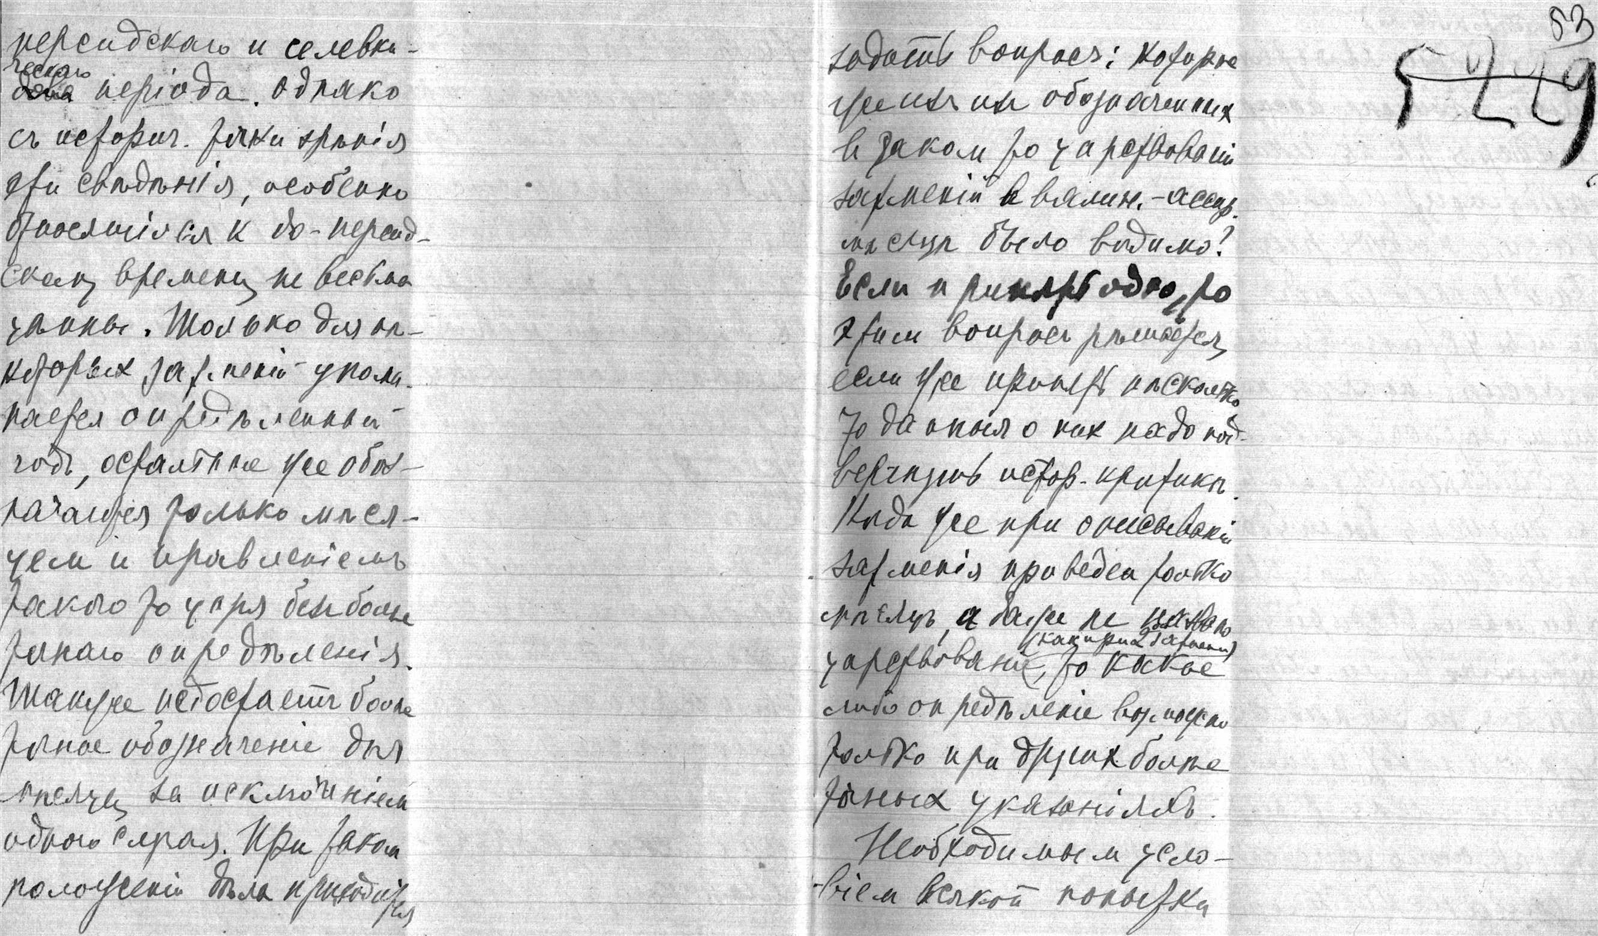 персидскаго и селевки-
ческаго періода. Однако
съ историч. точки зрѣнія
эти свѣдѣнія, особенно
относящіяся к до-персид-
скому времени, не весьма
цѣнны. Только для нѣ-
которых затменій упоми-
нается опредѣленный
годъ, остальные же обоз-
начаются только мѣся-
цем и правленіемъ
такого то царя без болѣе
точнаго опредѣленія.
Также недостаетъ болѣе
точное обозначеніе дня
мѣсяца, за исключеніем
одного случая. При таком
положеніи дѣла приходится
53
5229
задать вопросъ: которое
же из них обозначенных
в таком то царствованіи
затменій в вавилон.-ассир.
мѣсяцѣ было видимо?
Если и принять одно, то
этим вопросъ рѣшается,
если же принять нѣсколько
то данныя о них надо под-
вергнуть истор. критикѣ.
Когда же при описываніи
затменія приведен только
мѣсяцъ, а даже не
(как при 2 затменіи)
царствованіе, то какое
либо опредѣленіе возможно
только при других болѣе
точных указаніяхъ.
Необходимым усло-
віем всякой попытки